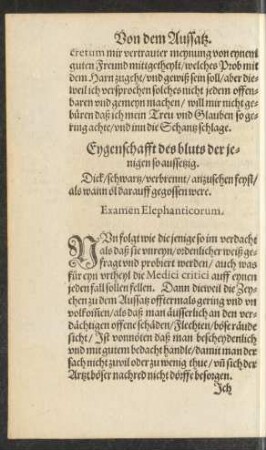 Von dem Aussatz.
cretum mir vertrauter meynung von eynem
guten Freund mitgetheylt/ welches Prob mit
dem Harn zugeht/ vnd gewiß sein soll/ aber die-
weil ich versprochen solches nicht jedem offen-
baren vnd gemeyn machen/ will mir nicht ge-
büren daß ich mein Treu vnd Glauben so ge-
ring achte/ vnd inn die Schantz schlage.
Eygenschafft des bluts der je-
nigen so aussetzig.
Dick/ schwartz/ verbrennt/ anzusehen feyst/
als wann öl darauff gegossen were.
Examen Elephanticorum.
NVn folgt wie die jenige so im verdacht
als daß sie vnreyn/ ordenlicher weiß ge-
fragt vnd probiert werden/ auch was
für eyn vrtheyl die Medici critici auff eynen
jeden fall sollen fellen. Dann dieweil die Zey-
chen zu dem Aussatz offtermals gering vnd vn
volkom̃en/ als daß man äusserlich an den ver-
dächtigen offene schäden/ Flechten/ böse räude
sicht/ Ist vonnöten daß man bescheydenlich
vnd mit gutem bedacht handle/ damit man der
sach nicht zuvil oder zu wenig thue/ vñ sich der
Artzt böser nachred nicht dörffe besorgen.
Ich